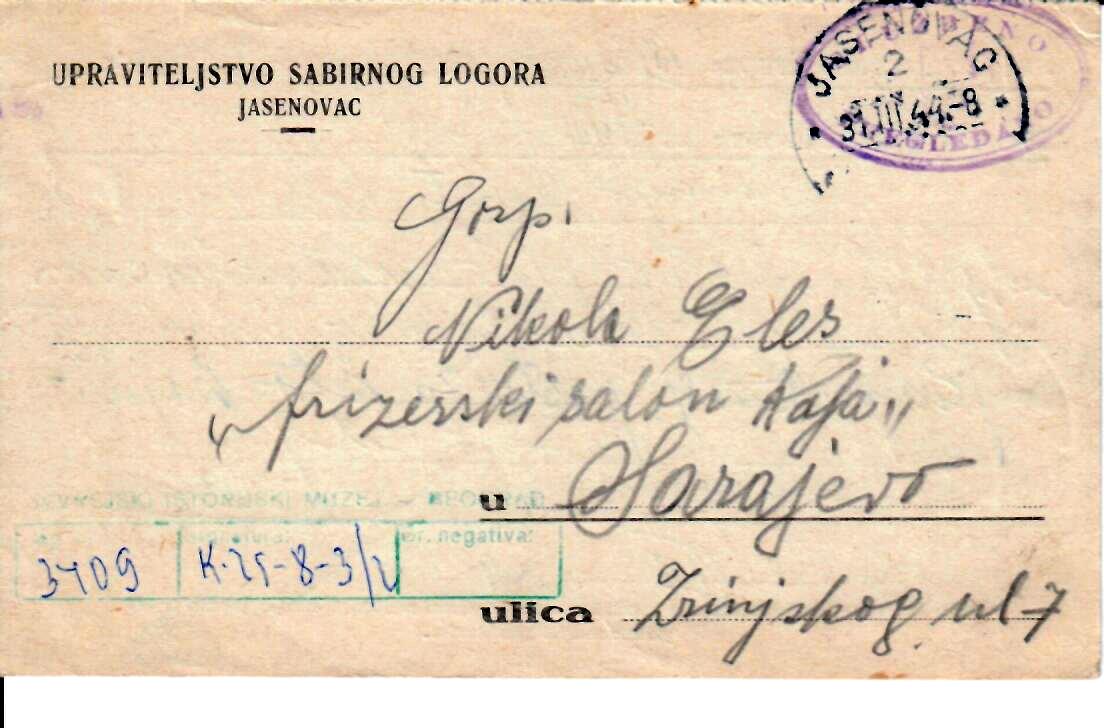 UPRAVITELJSTVO SABIRNOG LOGORA
JASENOVAC
JASENOVAC
2
31.III.44.-8
Gosp.
Nikola Eles
„frizerski salon Kaja"
u Sarajevo
JEVREJSKI ISTORIJSKI MUZEJ — BEOGRAD
signatura: br. negativa:
3409 K.25-8-3/2
ulica Zrinjskog ul 7